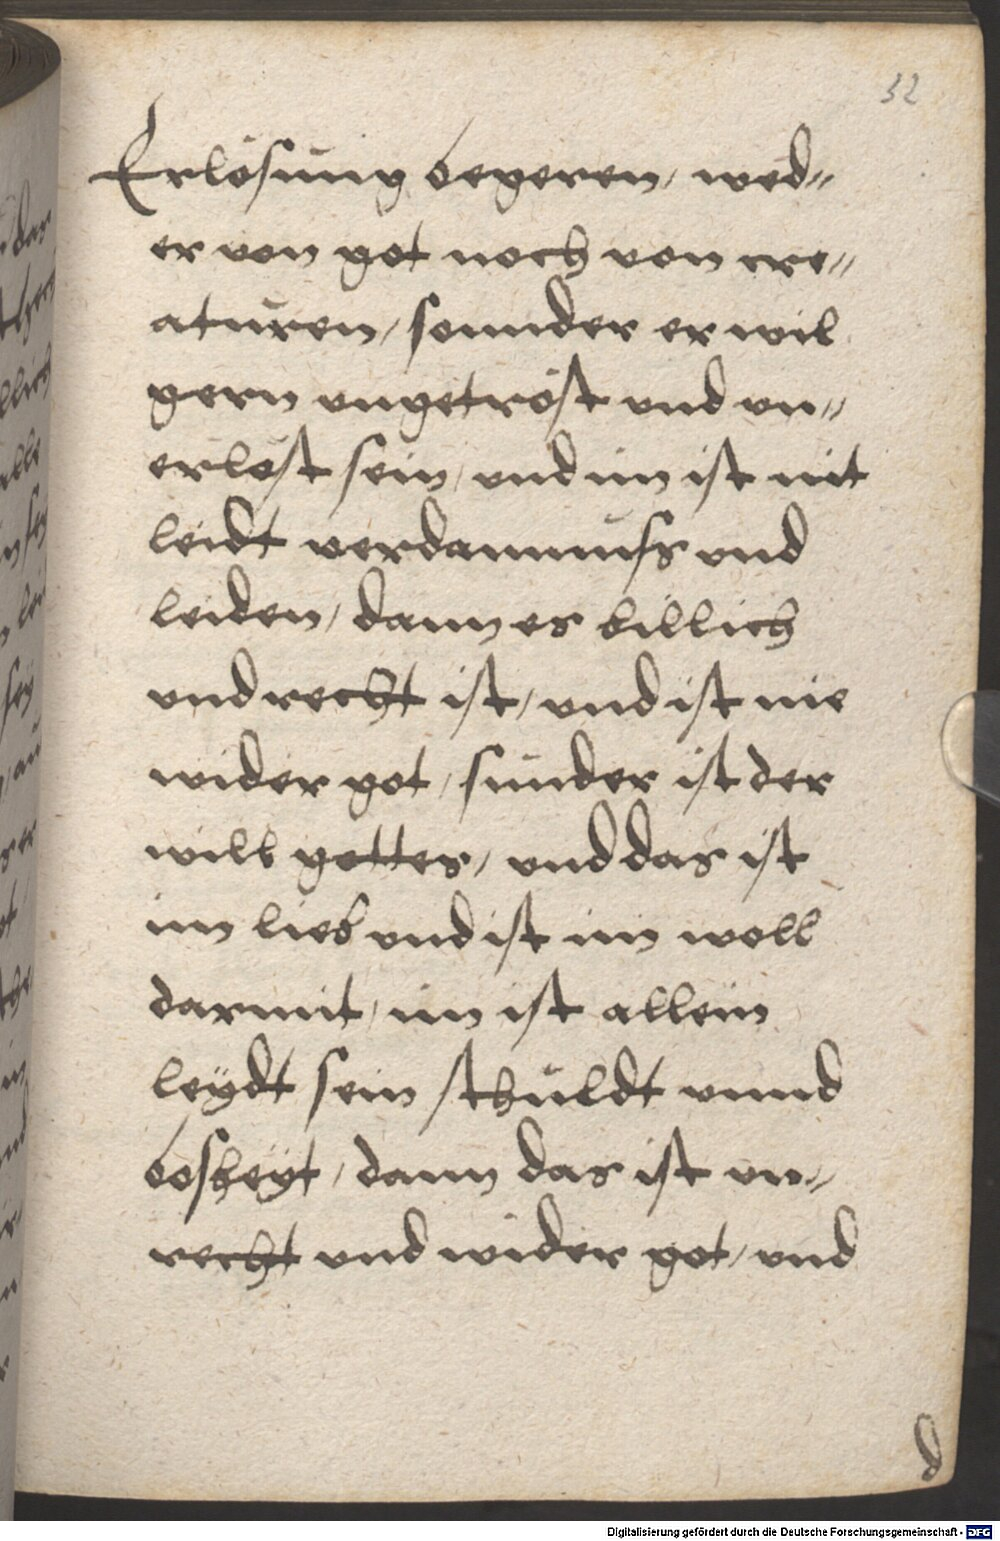 32
Erlösung begeren, wed=
er von got noch von cre=
aturen, sonnder er wil
gern ungetröst und un=
erlöst sein, und im ist nit
leidt verdamnuss und
leiden, dann es billich
und recht ist, und ist nie
wider got, sunder ist der
will gottes, und das ist
im lieb und ist im woll
darmit, im ist allein
leÿdt sein schuldt unnd
bosheyt, dann das ist un=
recht und wider got, und
Digitalisierung gefördert durch die Deutsche Forschungsgemeinschaft - DFG